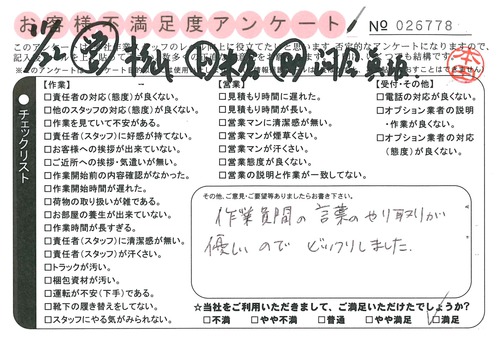 お客様不満足度アンケート
No 026778
【作業】
□責任者の対応(態度)が良くない。
□他のスタッフの対応(態度)が良くない。
□作業を見ていて不安がある。
□責任者(スタッフ)に好感が持てない。
□お客様への挨拶が出来ていない。
□ご近所への挨拶・気遣いが無い。
□作業開始前の内容確認がなかった。
□作業開始時間が遅れた。
□荷物の取り扱いが雑である。
□お部屋の養生が出来ていない。
□作業時間が長すぎる。
□責任者(スタッフ)に清潔感が無い。
□責任者(スタッフ)が汗くさい。
□トラックが汚い。
□梱包資材が汚い。
□運転が不安(下手)である。
□靴下の履き替えをしてない。
□スタッフにやる気がみられない。
【営業】
□見積もり時間に遅れた。
□見積もり時間が長い。
□営業マンに清潔感が無い。
□営業マンが煙草くさい。
□営業マンが汗くさい。
□営業態度が良くない。
□営業の説明と作業が一致してない。
【受付・その他】
□電話の対応が良くない。
□オプション業者の説明
・作業が良くない。
□オプション業者の対応
(態度)が良くない。
チェックリスト
その他、ご意見・ご要望等ありましたらお書き下さい。
作業員間の言葉のやり取りが
優しいのでビックリしました。
☆当社をご利用いただきまして、ご満足いただけたでしょうか?
□不満 □やや不満 □普通 □やや満足 □満足